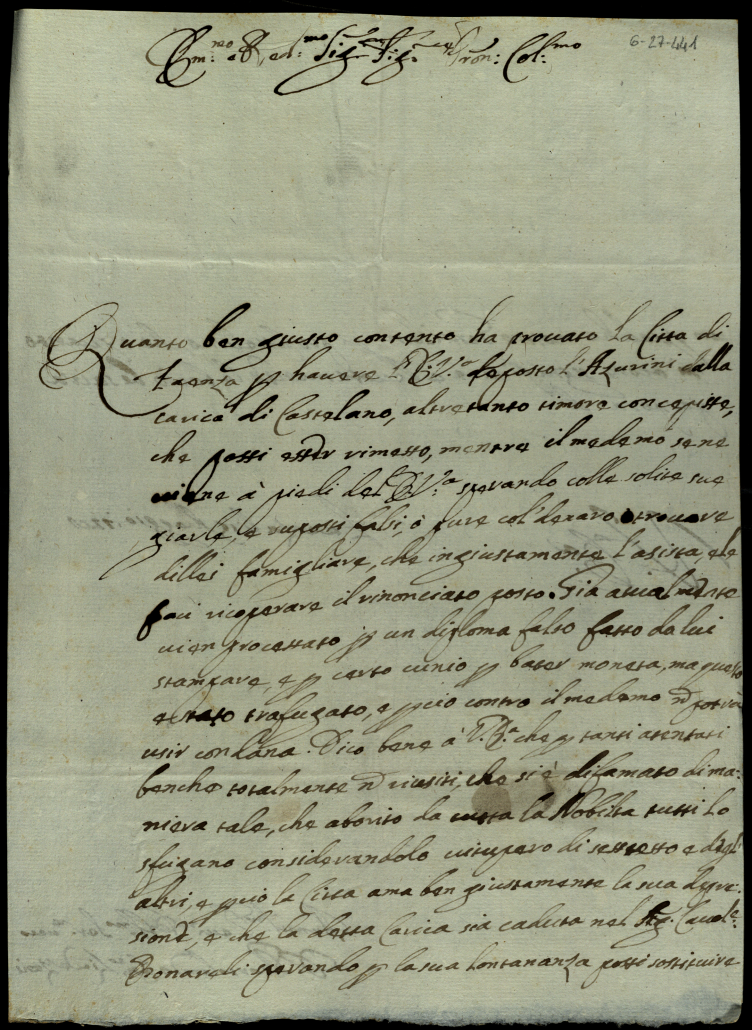 Em:mo e R, ed:mo Sig:r Sig:r e Pron: Col:mo
6-27-441
Quanto ben giusto contento ha trovato la Citta di
Faenza p havere l'E:V:a deposto l'Azurini dalla
carica di Castelano, altretanto timore concepisse,
che possi esser rimesso, mentre il medemo sene
viene à piedi del E:V:a sperando colle solite sue
giarle, e suposti falsi, ò pure col'denaro trovare
dillei famigliare, che ingiustamente l'asista, ele
faci ricoperare il rinonciato posto. Già atualmente
vien processato p un diploma falso fatto da lui
stampare, e p certo cunio p bater moneta, ma questo
e stato trafugato, e pciò contro il medemo n potrà
usir condana. Dico bene à V.E.a che p tanti atentati
benche totalmente n riusiti, che si è difamato di ma:
niera tale, che aborito da tutta la Nobilta tutti lo
sfugano considerandolo vitupero di se stesso e degl
altri, e pciò la Citta ama ben giustamente la sua depre:
sione, e che la detta Carica sia caduta nel Sig: Caval:e
Zonareli sperando p la sua lontananza possi sostituire